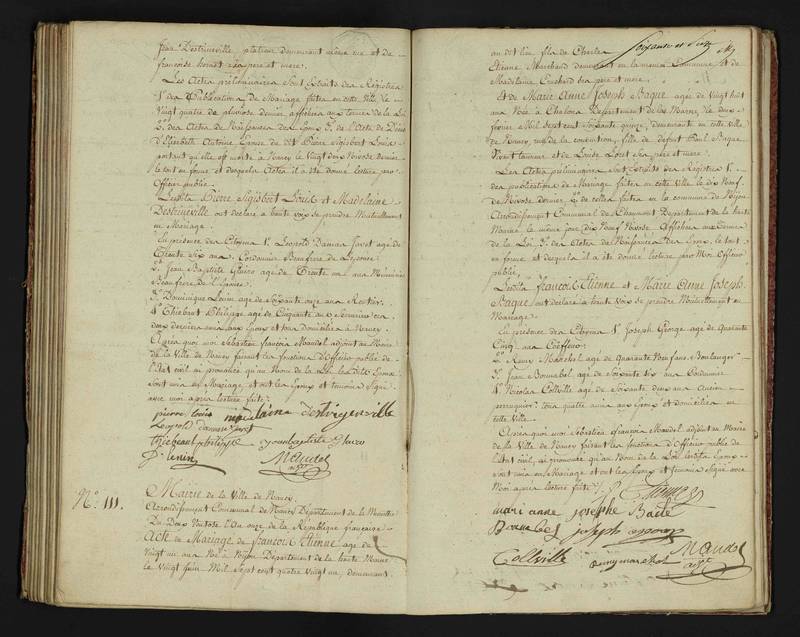 Jean Destrineville platrier demeurant même rue et de
françoise hornet ses pere et mere.
Les Actes préliminaires sont Extraits des Régistres
1º des Publications de Mariage faites en cette Ville le
Vingt quatre de pluviose dernier affichées aux termes de la Loi
2º des Actes de Naissances des Epoux 3º de l'Acte de Décès
d'Elisabeth Antoine Epouse de dit Pierre Sigisbert Louis
portant qu'elle est morte à Nancy le Vingt deux Nivose dernier
le tout en forme et desquels Actes il a été donné lecture par
Officier public.
Lesdits Pierre Sigisbert Louis et Madelaine
Destrineville ont déclaré à haute voix se prendre Mutuellement
en Mariage.
En présence des Citoyens 1º Léopold Damas Javet age de
Trente Six ans, Cordonnier Beaufrere de
2º Jean Baptiste age de Trente un ans Menuisier
Beaufrere de
3º Dominique Lenin age de Soixante onze ans Rentier
4º Thiebaut Philippe age de Cinquante ans Serrurier ces
deux derniers amis aux Epoux et tous domiciliés à Nancy.
Après quoi moi Sébastien françois Mandel adjoint au Maire
de la Ville de Nancy faisant les fonctions d'Officier public de
l'Etat civil ai prononcé qu'au Nom de la Loi lesdits Epoux
sont unis en Mariage et ont les Epoux et temoins Signé
avec moi après lecture faite.
pierre louis
Leopold damas javet
thiebaut philippe jean baptiste
D. lenin Mandel
adjt
Nº 111. Mairie de la Ville de Nancy.
Arrondissement Communal de Nancy Département de la Meurthe
Du Deux Ventose l'An onze de la République française
Acte de Mariage de françois Etienne age de
Vingt un ans Né à Bijon Département de la haute Marne
le Vingt Juin Mil Sept cent quatre Vingt un, demeurant
Soixante et
au dit lieu fils de Charles
Etienne Marchand demeurant en la même Commune et de
Madelaine ses pere et mere.
& de Marie Anne Joseph Baque age de Vingt huit
ans Née à Chalons Département de la Marne, le deux
février Mil Sept cent Soixante quinze, demeurante en cette ville
de Nancy, rue de la convention, fille de défunt Paul Baque
Vivant et de Louise Loret ses pere et mere.
Les Actes préliminaires sont Extraits des Régistres 1º
des publications de Mariage faites en cette Ville le dix Neuf
de Nivose dernier 2º de celles faites en la commune de Bijon
Arrondissement Communal de Chaumont Département de la haute
Marne, le même jour dix Neuf Nivose Affichées aux Termes
de la Loi 3º des Actes de Naissances des Epoux, le tout
en forme et desquels il a été donné lecture par Moi Officier
public.
Lesdits françois Etienne et Marie Anne Joseph
Baque ont déclaré à haute voix se prendre Mutuellement en
Mariage.
En présence des Citoyens 1º Joseph George agé de Quarante
Cinq ans Coeffeur
2º Remy Marchal agé de Quarante Neuf ans Boulanger
3º Jean Bonnabel agé de Soixante six ans Cordonnier
4º Nicolas Collville agé de Soixante deux ans Ancien
perruquier: tous quatre amis aux Epoux et domiciliés en
cette Ville.
Après quoi moi Sébastien françois Mandel adjoint au Maire
de la Ville de Nancy faisant les fonctions d'Officier public de
l'Etat civil, ai prononcé qu'au Nom de la Loi lesdits Epoux
sont unis en Mariage et ont les Epoux et temoins Signé avec
Moi après lecture faite.
marie anne josephe Baque
joseph
Collville Remy marchal Mandel
adjt